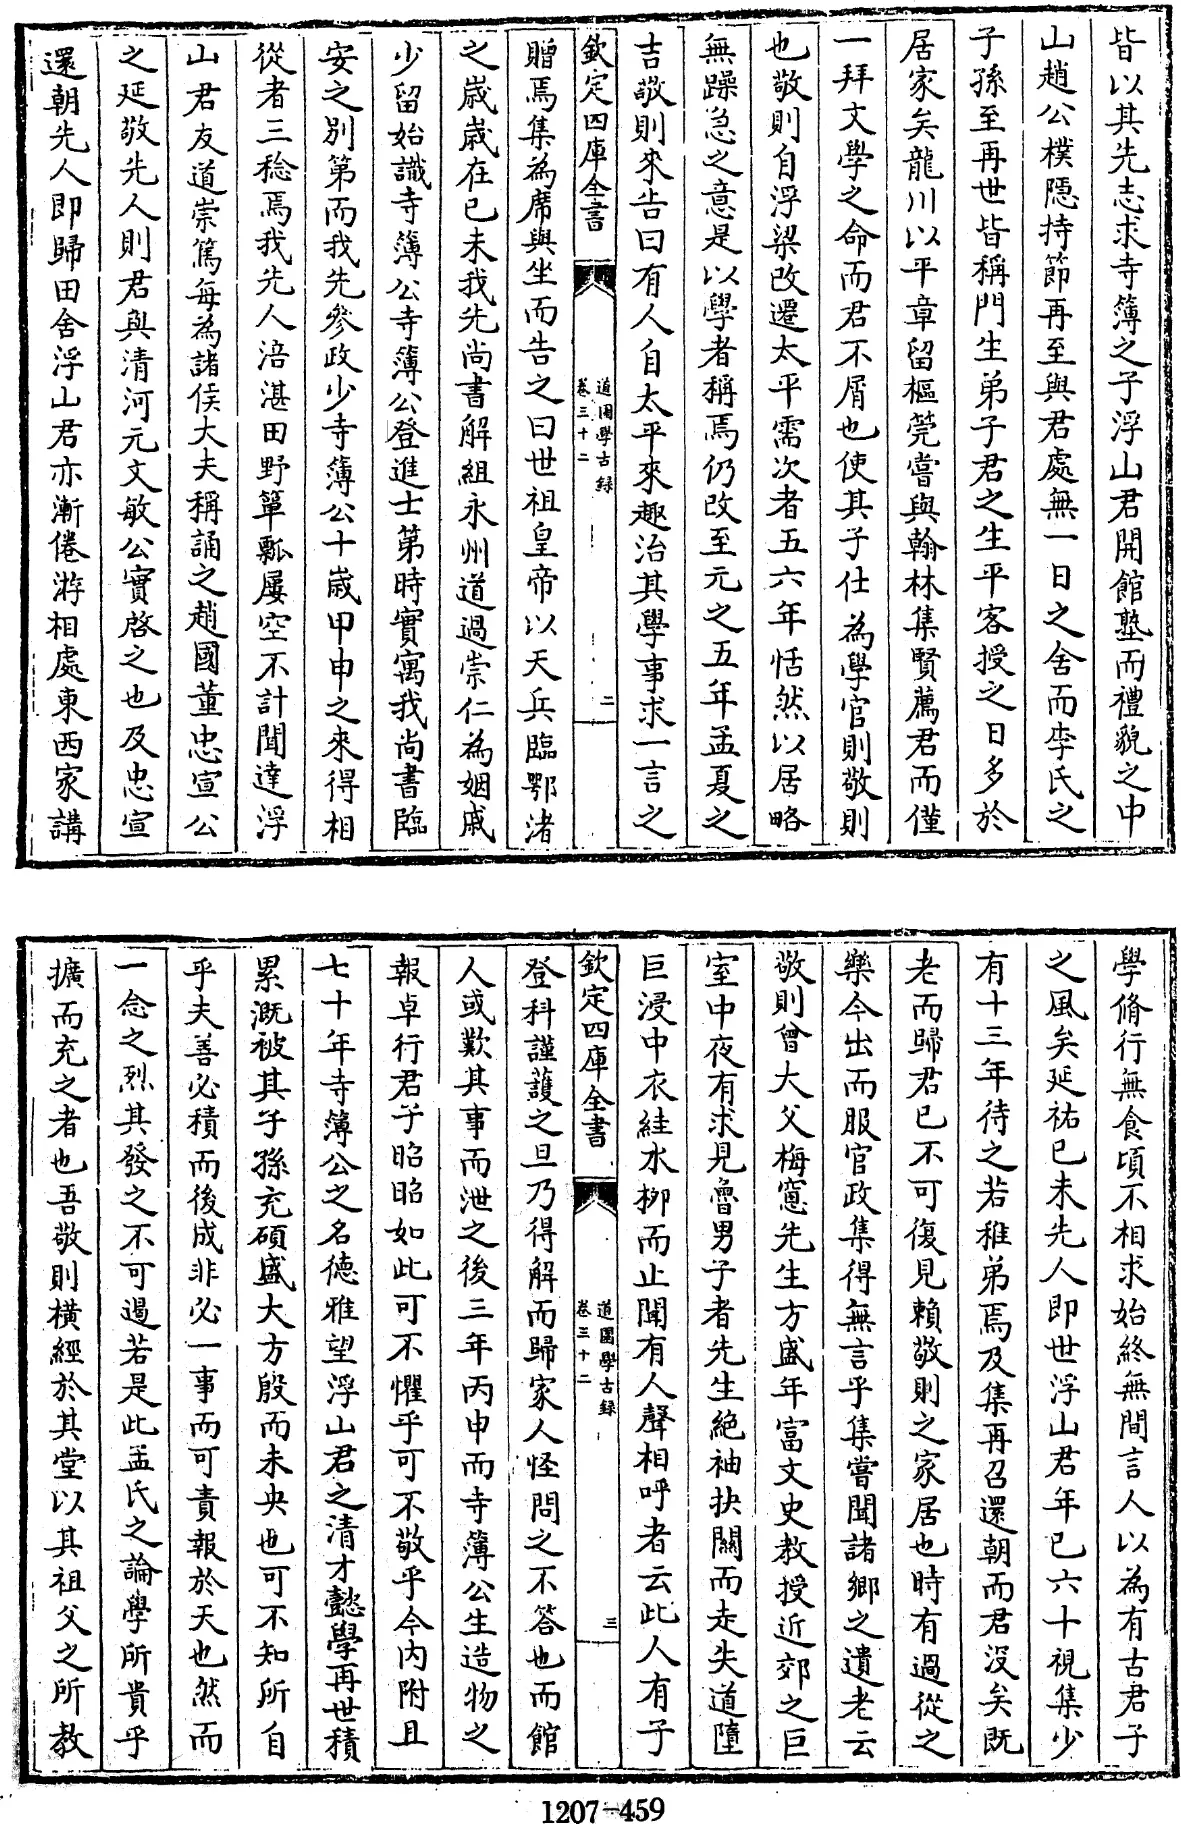 皆以其先志求寺簿之子浮山君開館塾而禮貌之中
山趙公樸隠持節再至與君處無一日之舍而李氏之
子孫至再世皆稱門生弟子君之生平客授之日多於
居家矣龍川以平章留樞筦嘗與翰林集賢薦君而僅
一拜文學之命而君不屑也使其子仕為學官則敬則
也敬則自浮梁改遷太平需次者五六年恬然以居略
無躁急之意是以學者稱焉仍改至元之五年孟夏之
吉敬則來告曰有人自太平來趣治其學事求一言之
欽定四庫全書
道園學古録
卷三十二
二
贈焉集為席與坐而告之曰世祖皇帝以天兵臨鄂渚
之歲歲在己未我先尚書解組永州道過崇仁為姻戚
少留始識寺簿公寺簿公登進士第時實寓我尚書臨
安之別第而我先參政少寺簿公十歲甲申之來得相
從者三稔焉我先人涪湛田野簞瓢屢空不計聞達浮
山君友道崇篤每為諸侯大夫稱誦之趙國董忠宣公
之延敬先人則君與清河元文敏公實啓之也及忠宣
還朝先人即歸田舍浮山君亦漸倦游相處東西家講
學脩行無食頃不相求始終無間言人以為有古君子
之風矣延祐已未先人即世浮山君年已六十視集少
有十三年待之若稚弟焉及集再召還朝而君沒矣既
老而歸君已不可復見賴敬則之家居也時有過從之
樂今出而服官政集得無言乎集嘗聞諸鄉之遺老云
敬則曾大父梅窻先生方盛年富文史教授近郊之巨
室中夜有求見魯男子者先生絶袖抉關而走失道墮
巨浸中衣絓水柳而止聞有人聲相呼者云此人有子
欽定四庫全書
道園學古録
卷三十二
三
登科謹護之旦乃得解而歸家人怪問之不答也而館
人或歎其事而泄之後三年丙申而寺簿公生造物之
報卓行君子昭昭如此可不懼乎可不敬乎今内附且
七十年寺簿公之名德雅望浮山君之清才懿學再世積
累溉被其子孫充碩盛大方殷而未央也可不知所自
乎夫善必積而後成非必一事而可責報於天也然而
一念之烈其發之不可遏若是此孟氏之論學所貴乎
擴而充之者也吾敬則横經於其堂以其祖父之所教
1207-459